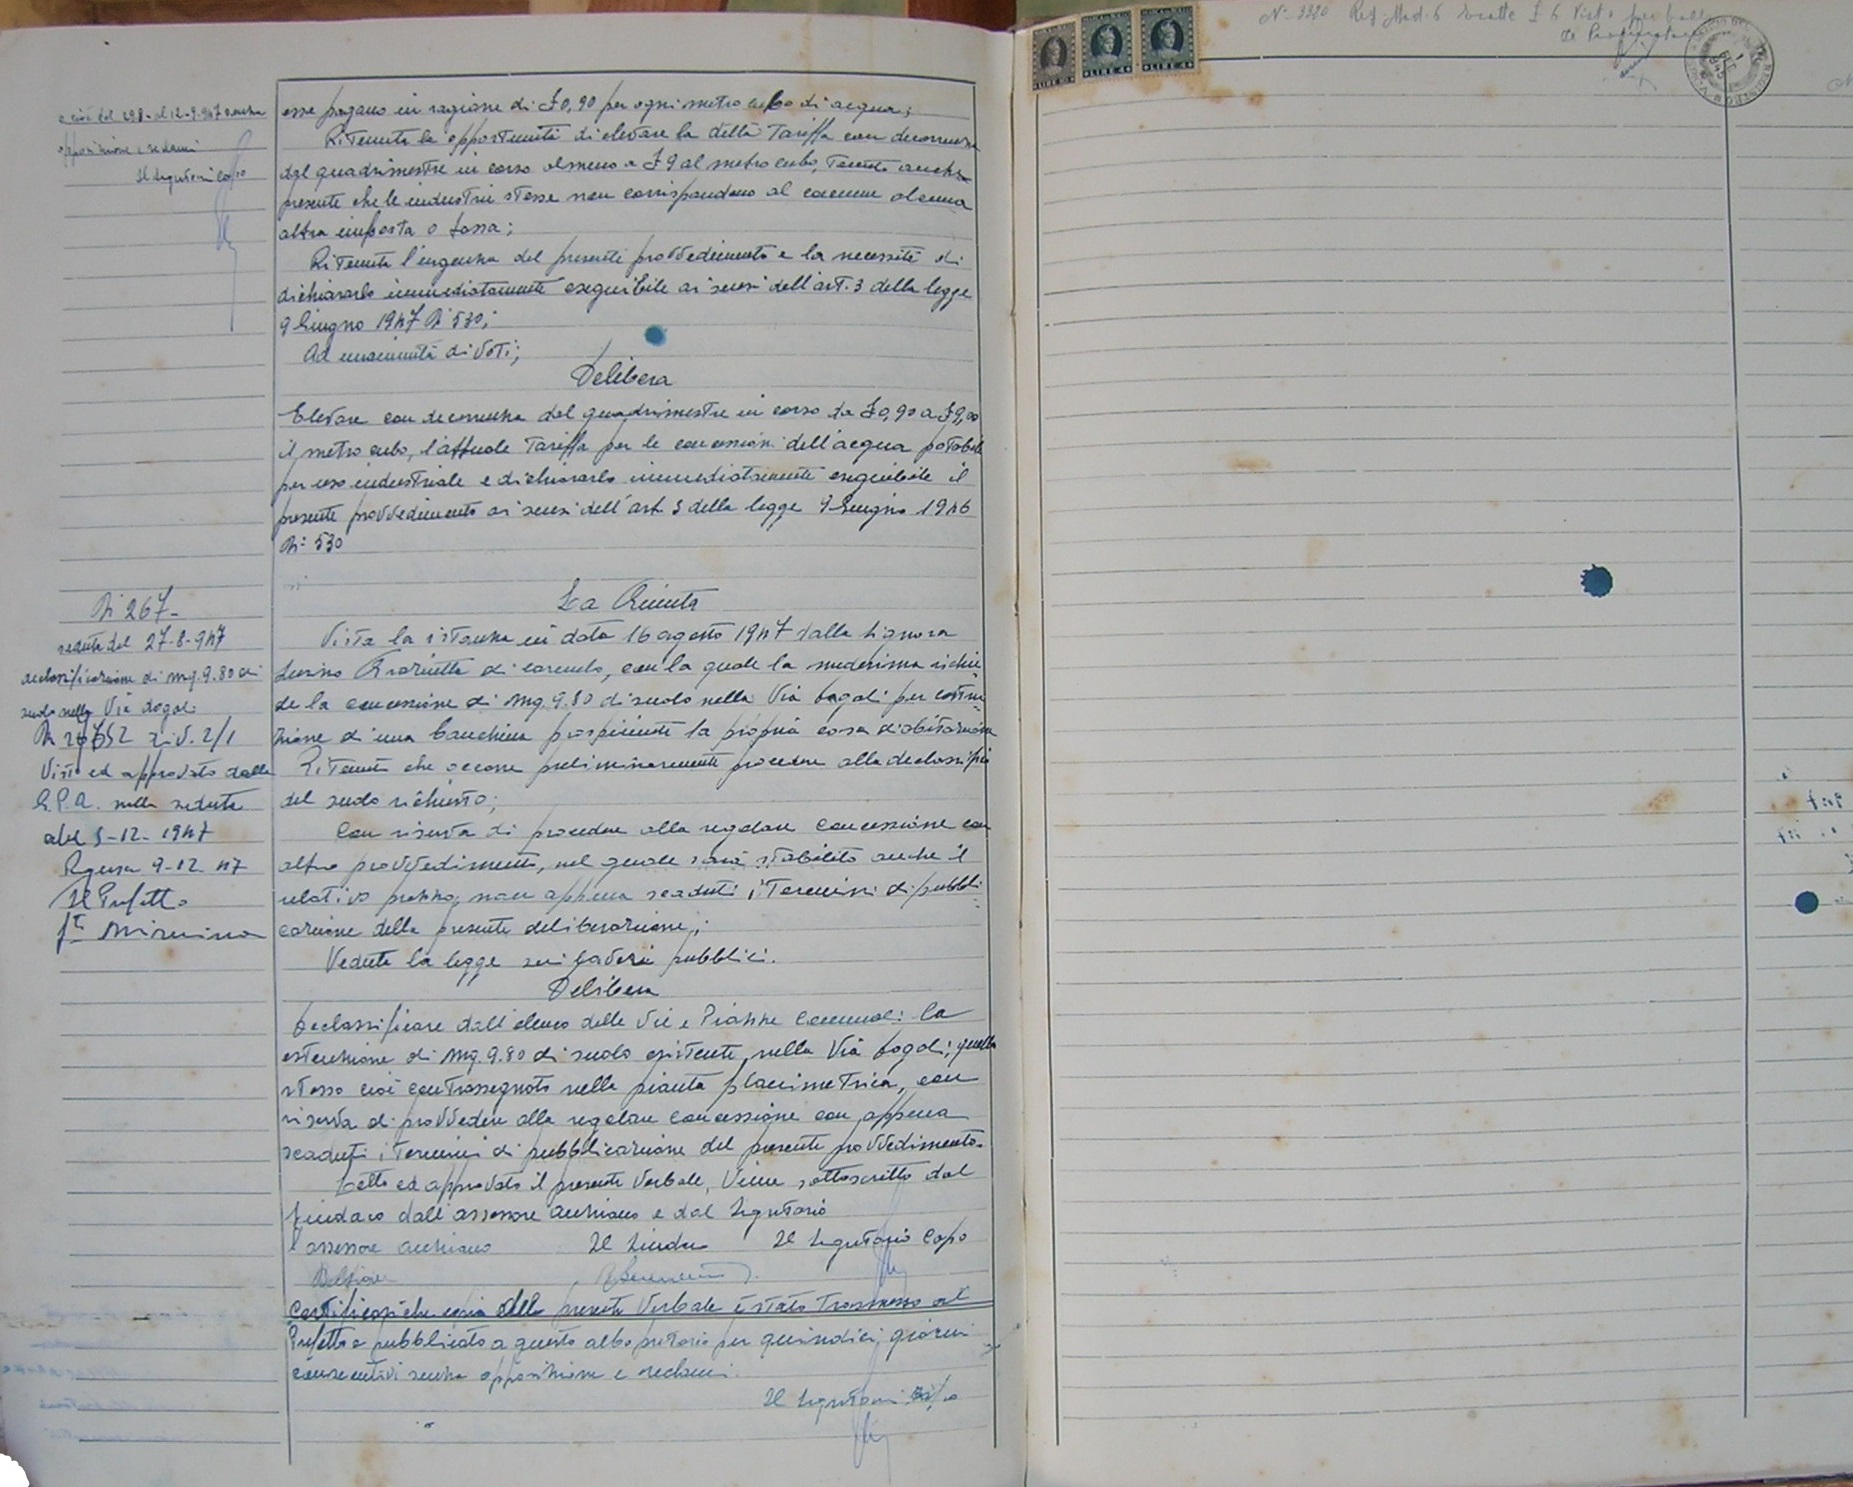 e cioè dal 29.8. al 12-9-947 senza
opposizione e reclami
Il Segretario Capo
esse pagano in ragione di £ 0,90 per ogni metro cubo di acqua;
Ritenuta la opportunità di elevare la detta Tariffa con decorrenza
dal quadrimestre in corso almeno a £ 9 al metro cubo, Tenuto anche
presente che le industrie stesse non corrispondono al comune alcuna
altra imposta o tassa;
Ritenuta l'urgenza del presente provvedimento e la necessità di
dichiararlo immediatamente eseguibile ai sensi dell'art. 3 della legge
9 Giugno 1947 N° 530;
Ad unanimità di voti;
Delibera
Elevare con decorrenza dal quadrimestre in corso da £ 0,90 a £ 9,00
il metro cubo, l'attuale Tariffa per le concessioni dell'acqua potabile
per uso industriale e dichiararlo immediatamente eseguibile il
presente provvedimento ai sensi dell'art. 3 della legge 9 Giugno 1946
N° 530
N° 267-
seduta del 27-8-947
declassificazione di mq. 9.80 di
suolo nella Via Fogali
Visto ed approvato dalla
G.P.A. nella seduta
del 5-12-1947
Ragusa 9-12-47
Il Prefetto
La Giunta
Vista la istanza in data 16 agosto 1947 dalla Signora
di Carmelo, con la quale la medesima richie
de la concessione di mq. 9.80 di suolo nella Via Fogali per costru=
zione di una banchina prospiciente la propria casa d'abitazione
Ritenuto che occorre preliminarmente procedere alla declassifica
del suolo richiesto;
Con riserva di procedere alla regolare concessione con
altro provvedimento, nel quale sarà stabilito anche il
relativo prezzo, non appena scaduti i Termini di pubbli=
cazione della presente deliberazione;
Veduta la legge sui lavori pubblici.
Delibera
Declassificare dall'elenco delle Vie e Piazze Comunali la
estenzione di mq. 9.80 di suolo esistente nella Via Fogali, quello
stesso cioè contrassegnato nella pianta planimetrica, con
riserva di provvedere alla regolare concessione non appena
scaduti i Termini di pubblicazione del presente provvedimento.
Letto ed approvato il presente Verbale, Viene sottoscritto dal
Sindaco dall'assessore anziano e dal Segretario
l'assessore anziano Il Sindaco Il Segretario Capo
Certificasi che copia della presente Verbale è stato Trasmesso al
Prefetto e pubblicato a questo albo pretorio per quindici giorni
consecutivi senza opposizione e reclami.
Il Segretario Capo
LIRE 4 LIRE 4
N° 3320 Reg. Mod. 6
Il Procuratore